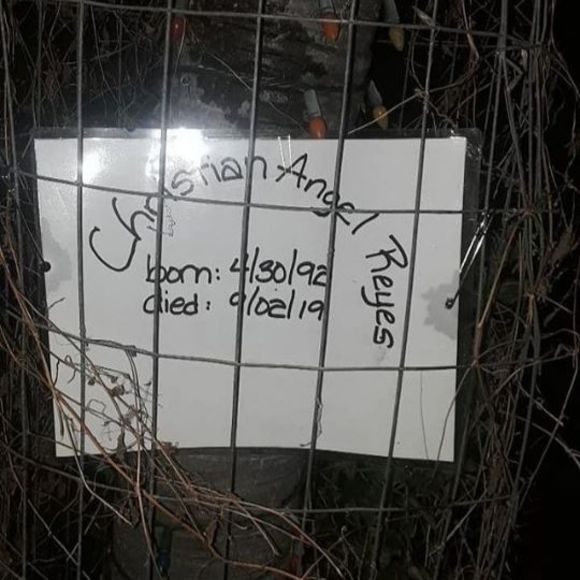 Christian Angel Reyes
born: 4/30/92
died: 9/02/19